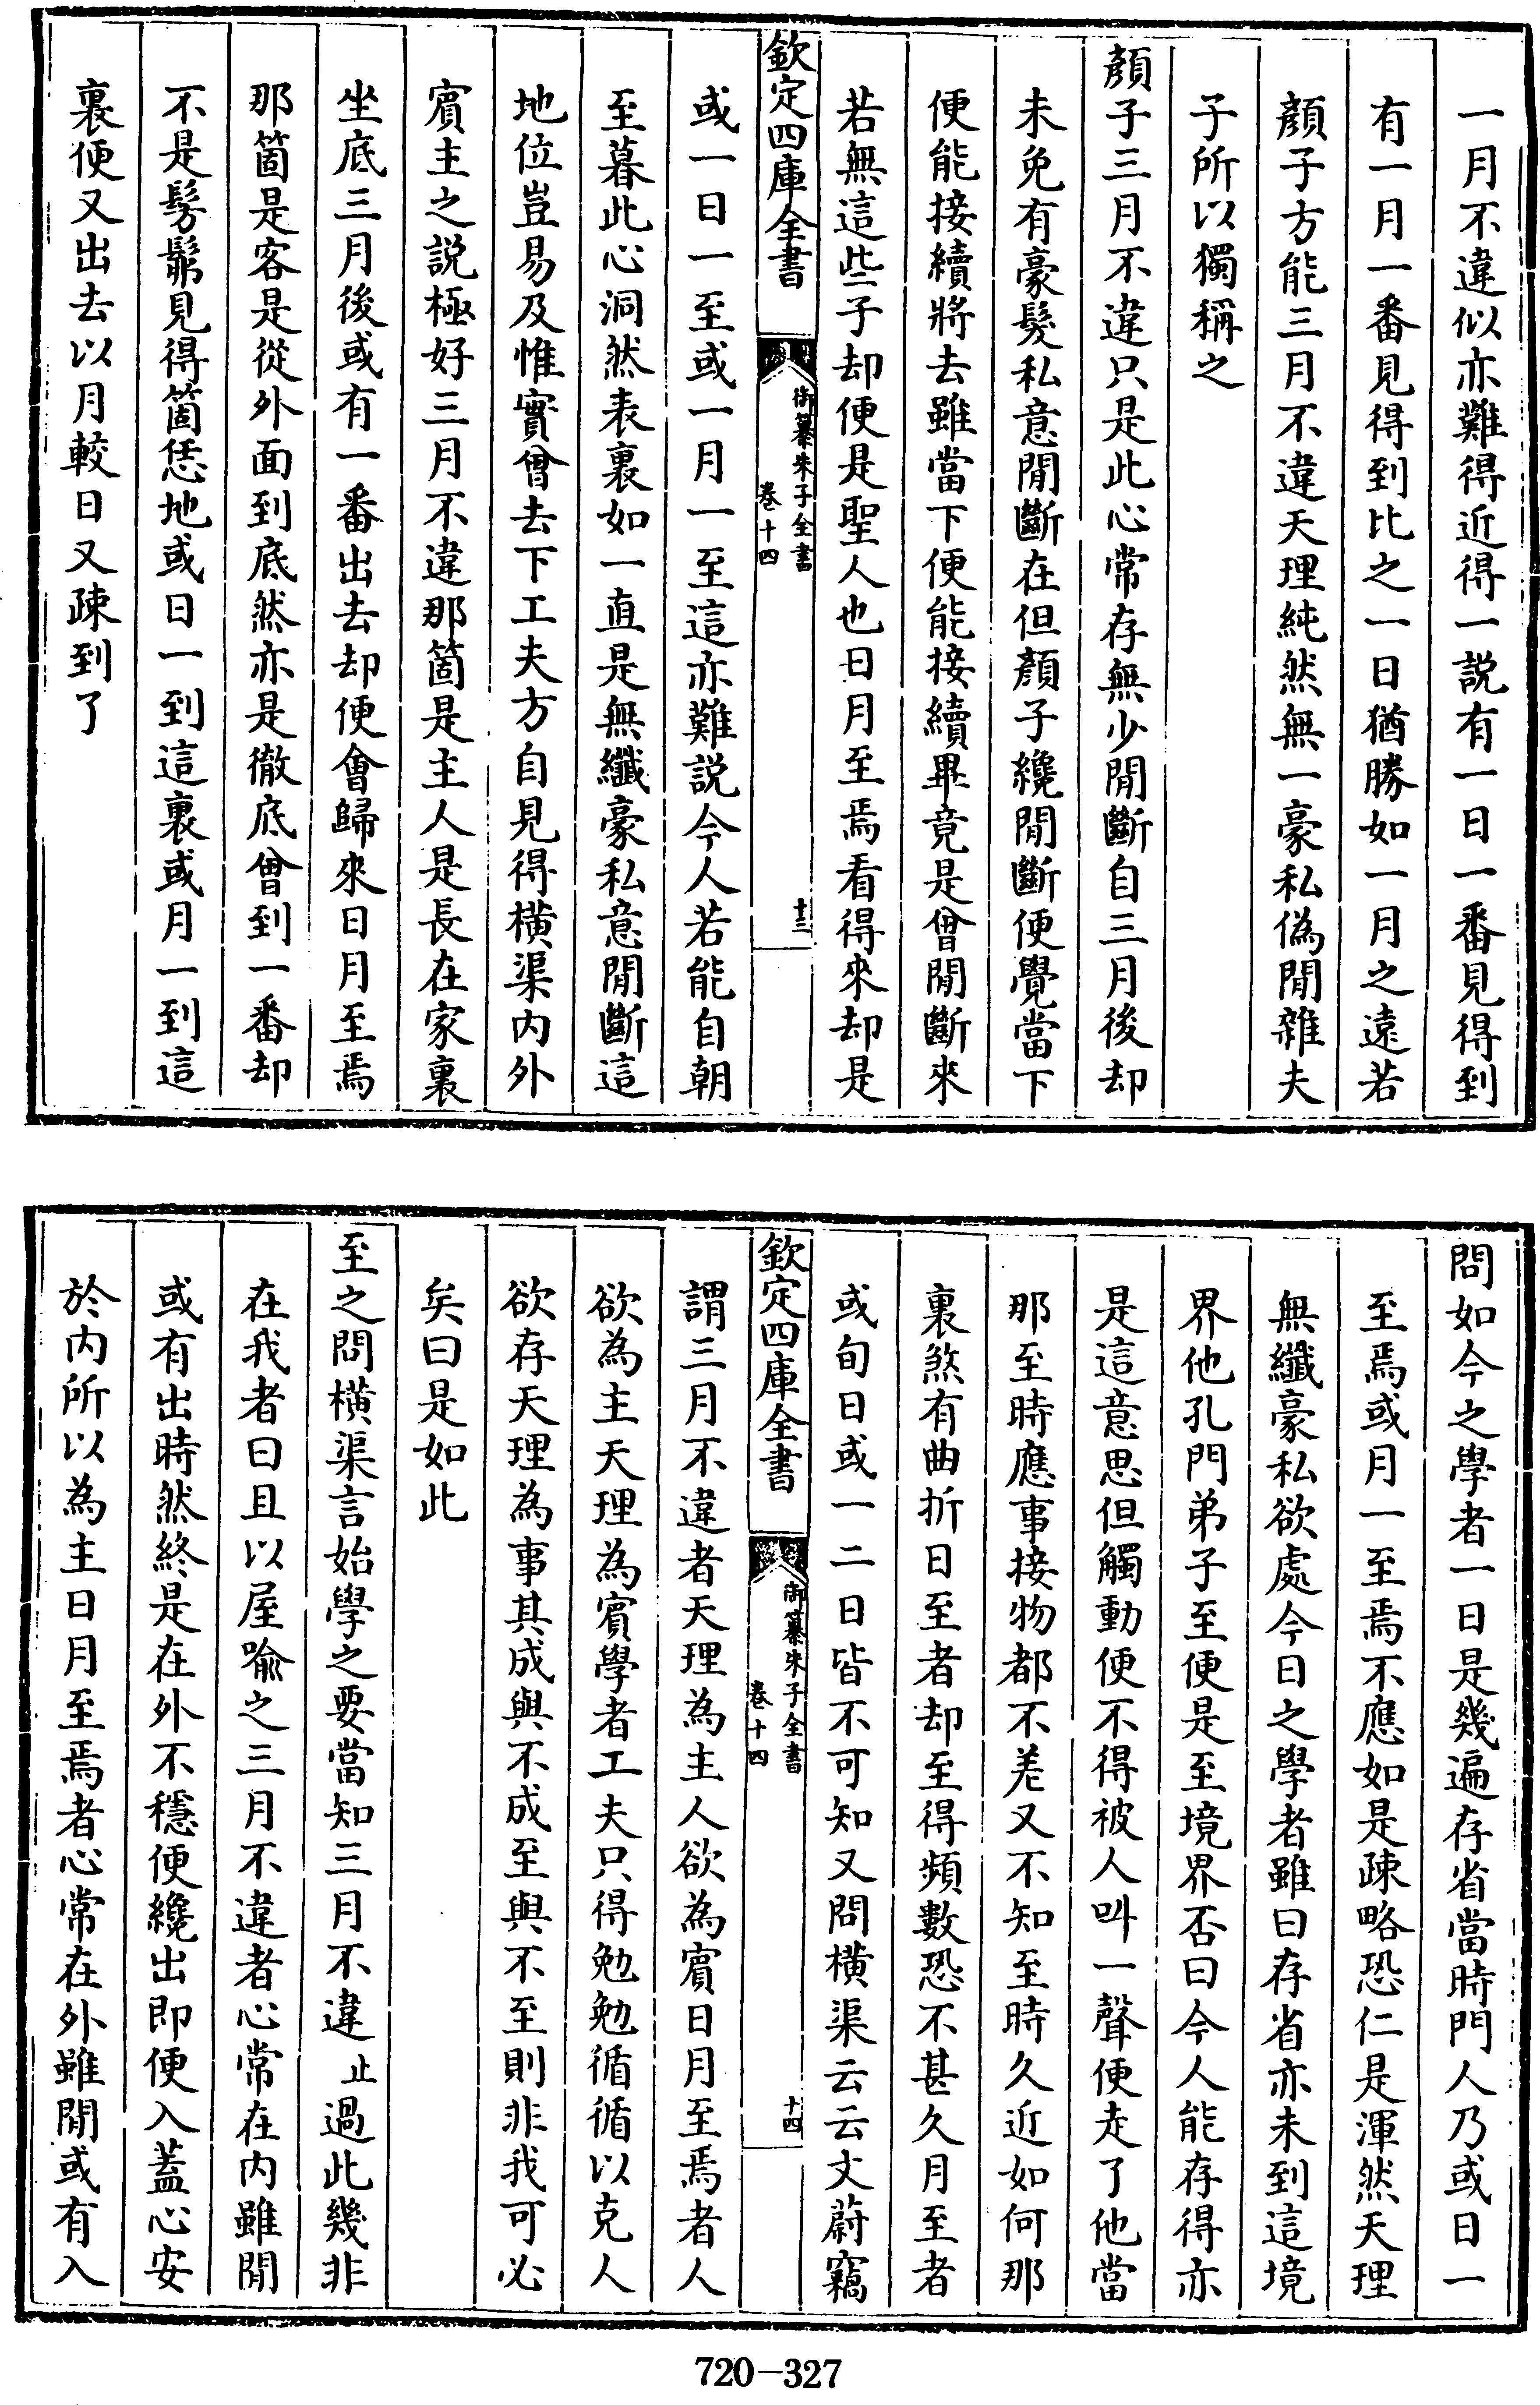 一月不違似亦難得近得一説有一日一番見得到
有一月一番見得到比之一日猶勝如一月之遠若
顔子方能三月不違天理純然無一豪私偽閒雜夫
子所以獨稱之
顔子三月不違只是此心常存無少閒斷自三月後却
未免有豪髮私意閒斷在但顔子纔閒斷便覺當下
便能接續將去雖當下便能接續畢竟是曾閒斷來
若無這些子却便是聖人也日月至焉看得來却是
欽定四庫全書
御纂朱子全書
卷十四
十三
或一日一至或一月一至這亦難説今人若能自朝
至暮此心洞然表裏如一直是無纖豪私意閒斷這
地位豈易及惟實曾去下工夫方自見得橫渠内外
賓主之説極好三月不違那箇是主人是長在家裏
坐底三月後或有一番出去却便會歸來日月至焉
那箇是客是從外面到底然亦是徹底曾到一番却
不是髣髴見得箇恁地或日一到這裏或月一到這
裏便又出去以月較日又疎到了
問如今之學者一日是幾遍存省當時門人乃或日一
至焉或月一至焉不應如是疎略恐仁是渾然天理
無纖豪私欲處今日之學者雖曰存省亦未到這境
界他孔門弟子至便是至境界否曰今人能存得亦
是這意思但觸動便不得被人叫一聲便走了他當
那至時應事接物都不差又不知至時久近如何那
裏煞有曲折日至者却至得頻數恐不甚久月至者
或旬日或一二日皆不可知又問橫渠云云文蔚竊
欽定四庫全書
御纂朱子全書
卷十四
十四
謂三月不違者天理為主人欲為賓日月至焉者人
欲為主天理為賓學者工夫只得勉勉循循以克人
欲存天理為事其成與不成至與不至則非我可必
矣曰是如此
至之問橫渠言始學之要當知三月不違止過此幾非
在我者曰且以屋喻之三月不違者心常在内雖閒
或有出時然終是在外不穩便纔出即便入蓋心安
於内所以為主日月至焉者心常在外雖閒或有入
720-327